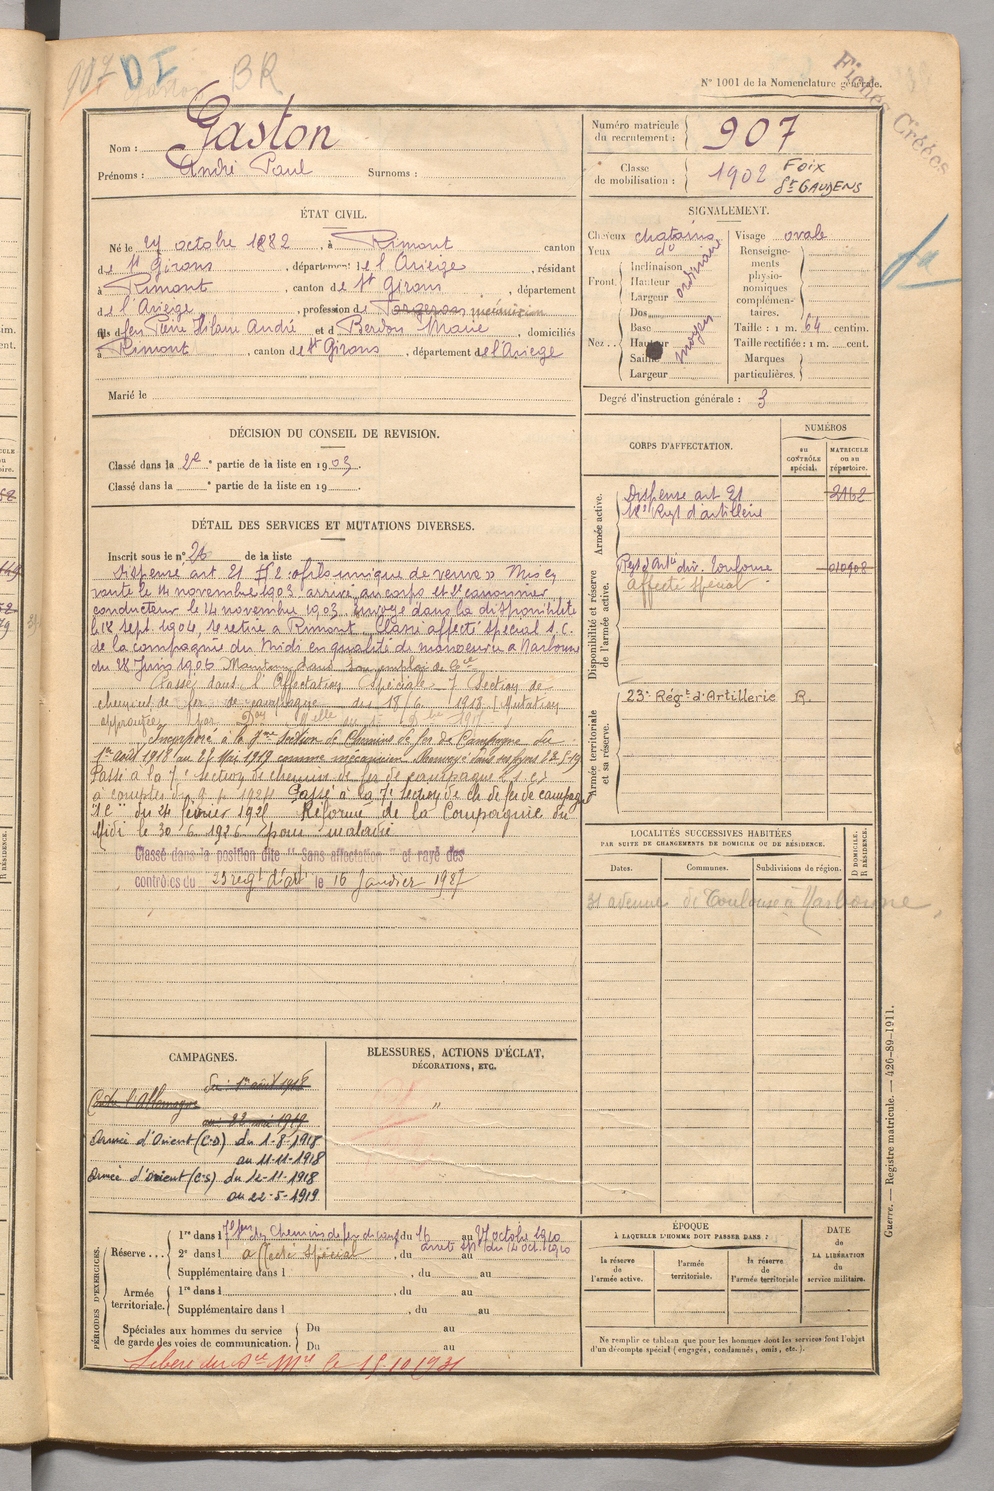 907 DI BR
N° 1001 de la Nomenclature générale.
Fiches Créées
Nom : Gaston
Prénoms : André Paul Surnoms :
Numéro matricule du recrutement : 907
Classe de mobilisation : 1902 Foix St GAUDENS
ÉTAT CIVIL.
Né le 27 octobre 1882, à Rimont canton
de St Girons, département de l'Ariège, résidant
à Rimont, canton de St Girons, département
de l'Ariège, profession de Forgeron mécanicien
fils de feu Pierre Hilaire André et de Berdou Marie, domiciliés
à Rimont, canton de St Girons, département de l'Ariège
Marié le
SIGNALEMENT.
Cheveux chatains
Yeux do
Front. Inclinaison
Hauteur
Largeur
ordinaire
Nez... Dos
Base
Hauteur
Saillie
Largeur
moyen
Visage ovale
Renseignements physionomiques complémentaires.
Taille : 1 m. 64 centim.
Taille rectifiée : 1 m. cent.
Marques particulières.
Degré d'instruction générale : 3
DÉCISION DU CONSEIL DE REVISION.
Classé dans la 2e partie de la liste en 1903.
Classé dans la e partie de la liste en 19
DÉTAIL DES SERVICES ET MUTATIONS DIVERSES.
Inscrit sous le n° 26 de la liste
Dispensé art 21 § 2 « fils unique de veuve » Mis en
route le 14 novembre 1903 arrivé au corps et 2e canonnier
conducteur le 14 novembre 1903. Envoyé dans la disponibilité
le 18 sept. 1904, se retire à Rimont. Classé affecté spécial S.C.
de la compagnie du Midi en qualité de manoeuvre à Narbonne
du 28 Juin 1906 Maintenu dans son emploi de
Passé dans l'Affectation Spéciale 7 Section de
chemins de fer de campagne des 18/6 1918 (Mutation
approuvée par
Incorporé à la 7me Section de Chemins de fer de Campagne du
1er août 1918 au 22 Mai 1919 comme mécanicien. Renvoyé dans ses foyers 22-5-19
Passé à la 7e section de chemin de fer de campagne S.C.
à compter du 9 4 1924 Passé à la 7e section de ch. de fer de campagne
"S.C" du 24 février 1925 Réformé de la Compagnie du
Midi le 30 6 1926 pour maladie
Classé dans la position dite " Sans affectation " et rayé des
contrôles du 23 regt d'art le 15 Janvier 1927
CORPS D'AFFECTATION.
NUMÉROS
au CONTRÔLE spécial.
MATRICULE ou au répertoire.
Armée active.
Dispensé art 21
18e Regt d'artillerie 2162
Disponibilité et réserve de l'armée active.
Regt d'Artie div. Toulouse 010902
affecté spécial
Armée territoriale et sa réserve.
23e Régt d'Artillerie R.
LOCALITÉS SUCCESSIVES HABITÉES
PAR SUITE DE CHANGEMENTS DE DOMICILE OU DE RÉSIDENCE.
Dates. Communes. Subdivisions de région. D DOMICILE. R RÉSIDENCE.
31 avenue de Toulouse à Narbonne
CAMPAGNES.
du : 1er août 1918
Contre l'Allemagne
au : 22 mai 1919
Armée d'Orient (C.D) du 1-8-1918
au 11-11-1918
Armée d'Orient (C.S) du 12-11-1918
au 22-5-1919
BLESSURES, ACTIONS D'ÉCLAT,
DÉCORATIONS, ETC.
"
PÉRIODES D'EXERCICES.
Réserve... 1re dans l du 16 au 27 octobre 1910
2e dans l affecté spécial, du au
Supplémentaire dans l , du au
Armée territoriale. 1re dans l , du au
Supplémentaire dans l , du au
Spéciales aux hommes du service de garde des voies de communication. Du au
Du au
Libéré du Sce Mre le 15 10 1931
ÉPOQUE
À LAQUELLE L'HOMME DOIT PASSER DANS :
la réserve de l'armée active.
l'armée territoriale.
la réserve de l'armée territoriale
DATE de LA LIBÉRATION du service militaire.
Ne remplir ce tableau que pour les hommes dont les services font l'objet
d'un décompte spécial (engagés, condamnés, omis, etc.).
Guerre. — Registre matricule. — 426-89-1911.